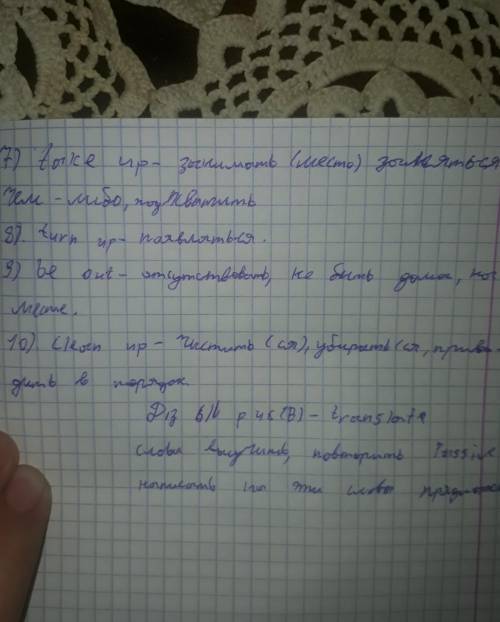 7) take up - занимать (место) заняться
чем-либо, подхватить
8). turn up - появляться.
9) be out - отсутствовать, не быть дома, на
месте.
10) clean up - чистить (ся), убирать(ся, приво-
дить в порядок.
Д/з в/п р 46(B) - translate
слова выучить, повторить Passive
написать на эти слова предложе